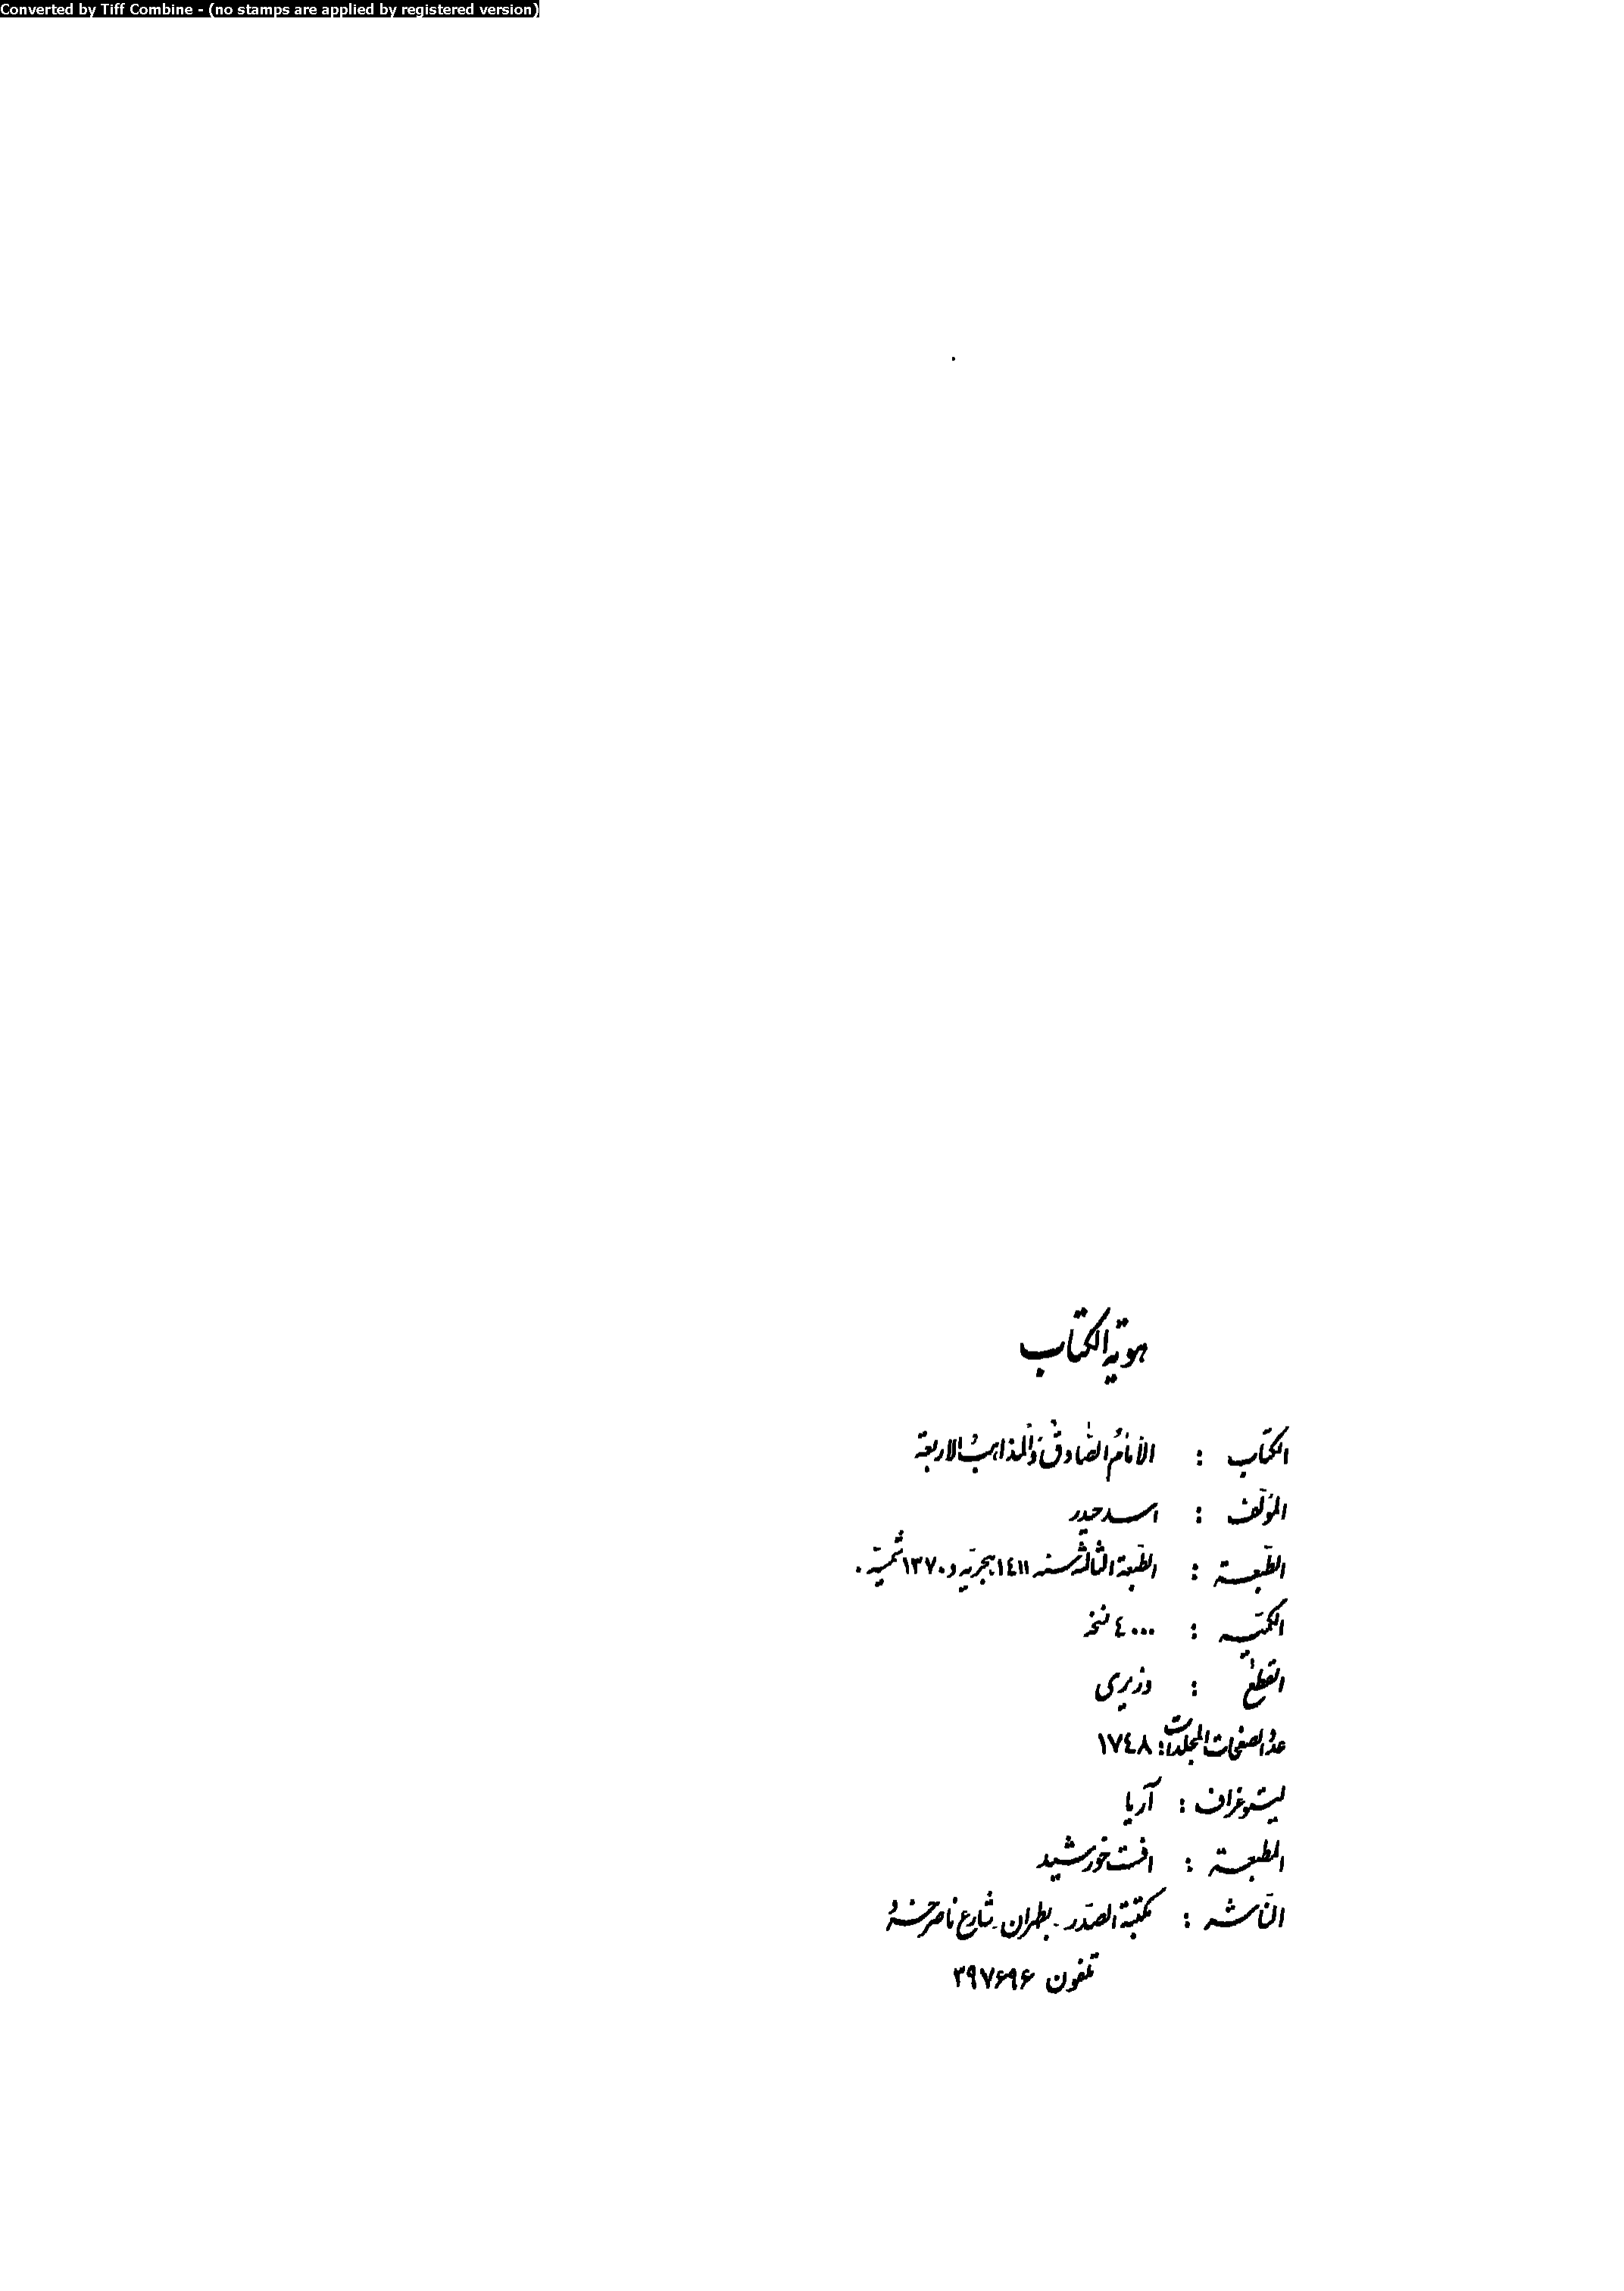 Converted by Tiff Combine - (no stamps are applied by registered version)
هوية الكتاب
الكتاب : الأمام الصادق والمذاهب الاربعة
المؤلف : اسد حيدر
الطبعة : الطبعة الثالثة سنه ١٤١١ هجرية و ١٣٧٠ شمسية .
الكمية : ٤٠٠٠ نسخه
القطع : وزيرى
عدد الصفحات المجلدات : ١٧٤٨
ليتوغراف : آريا
المطبعة : افست خورشيد
الناشر : مكتبة الصدر - بطهران - شارع ناصر خسرو
تلفون ٣٩٧۶٩۶